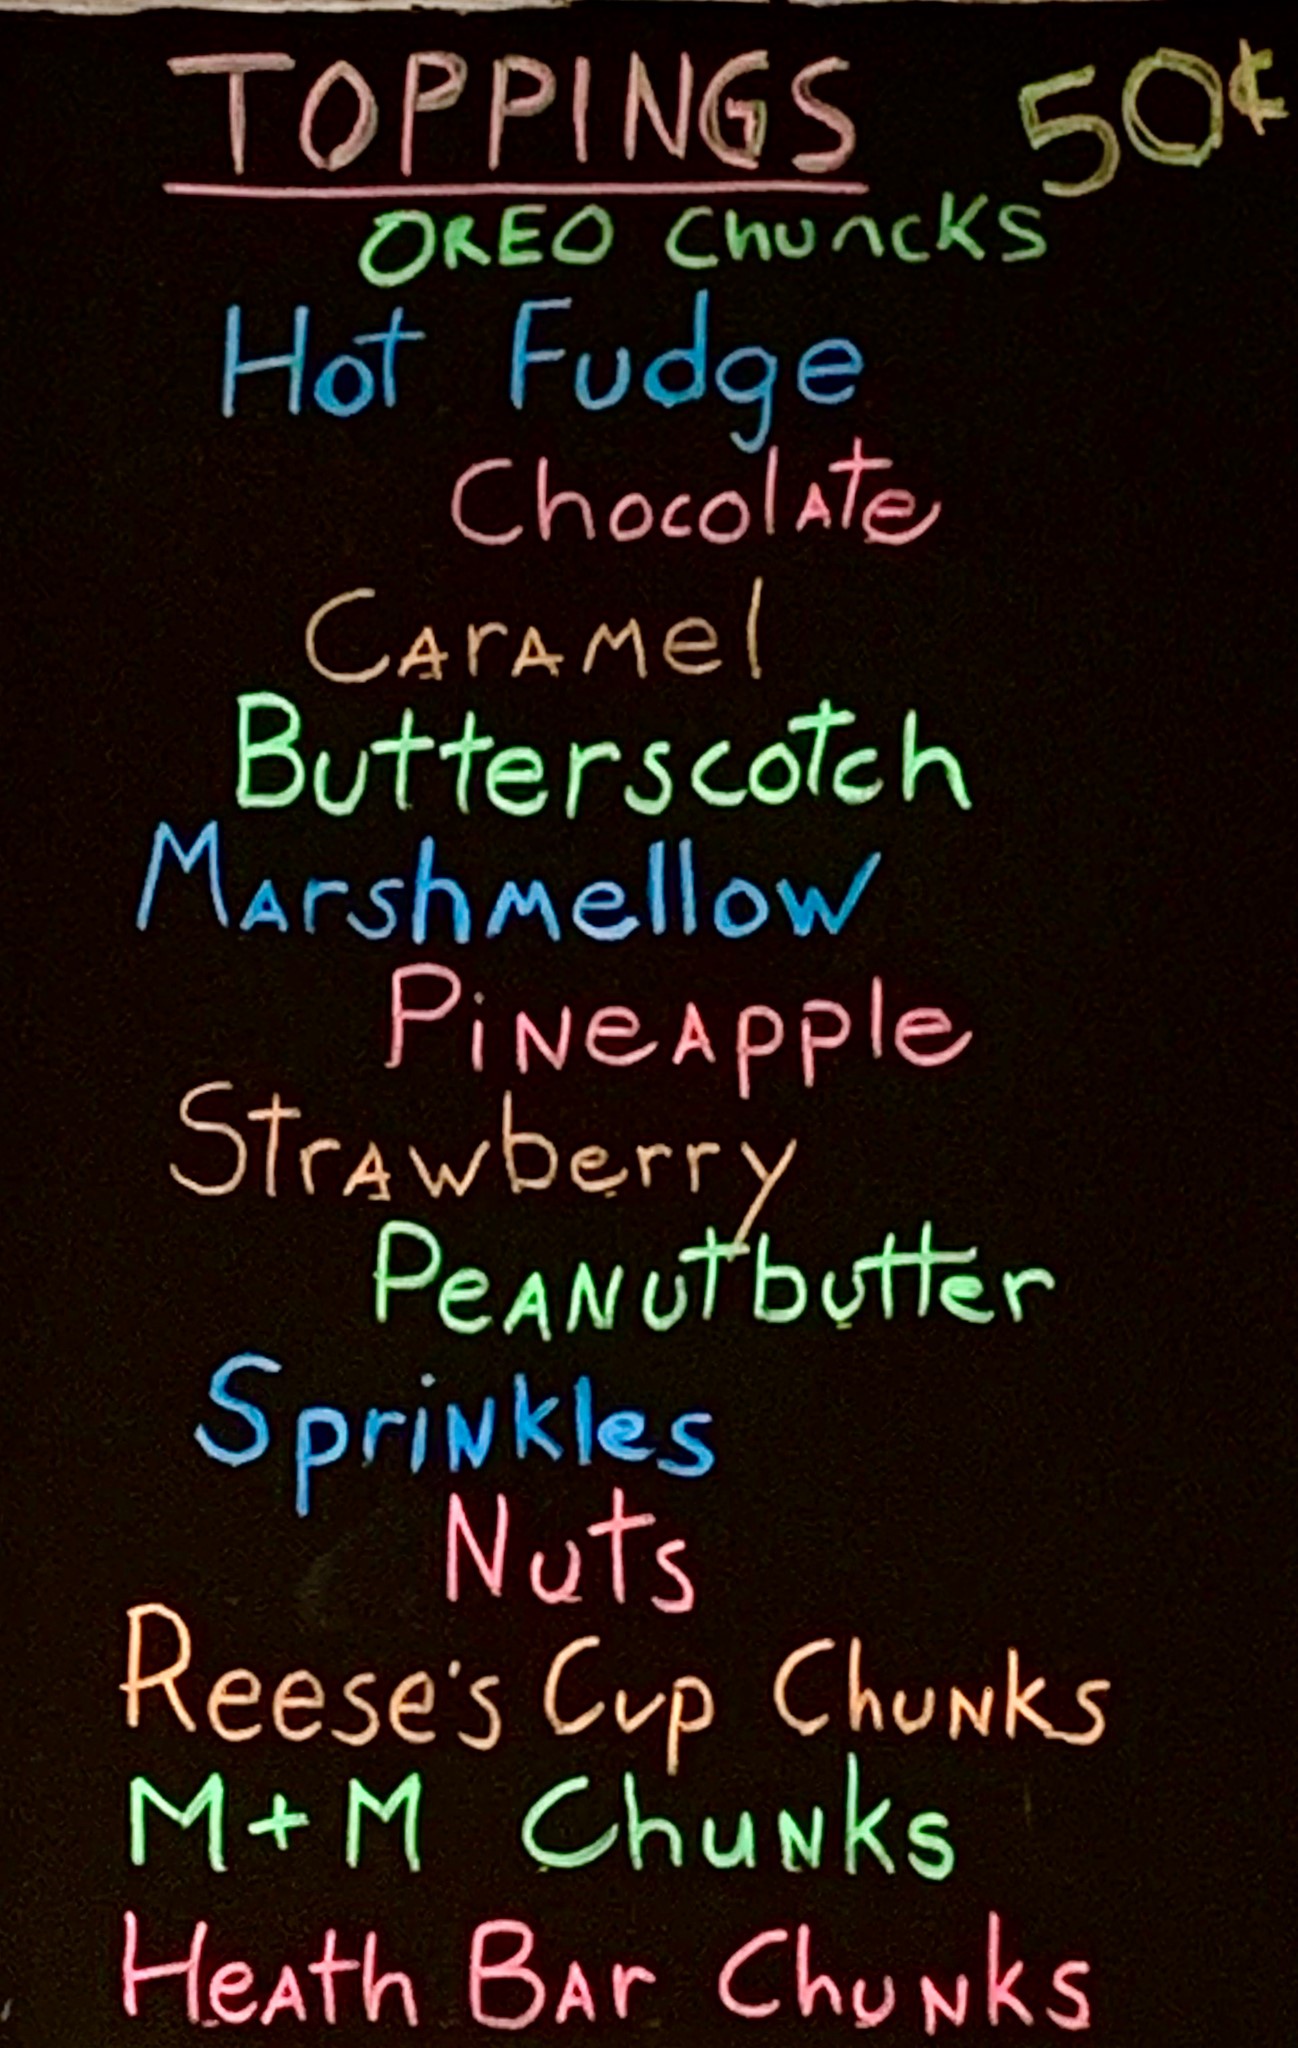 TOPPINGS 50¢
OREO Chuncks
Hot Fudge
Chocolate
Caramel
Butterscotch
Marshmellow
Pineapple
Strawberry
Peanutbutter
Sprinkles
Nuts
Reese's Cup Chunks
M+M Chunks
Heath Bar Chunks